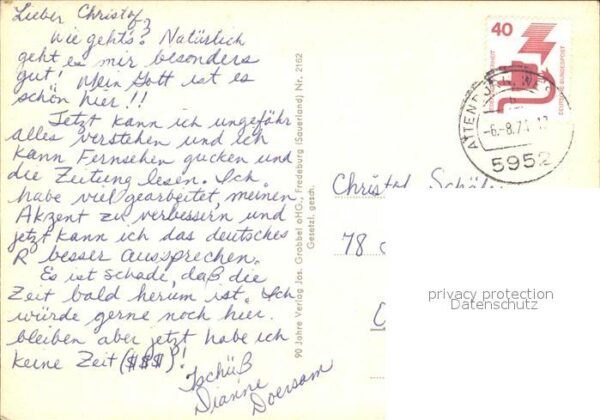 Lieber Christof,
wie gehts? Natürlich
geht es mir besonders
gut! Mein Gott ist es
schön hier!!
Jetzt kann ich ungefähr
alles verstehen und ich
kann Fernsehen gucken und
die Zeitung lesen. Ich
habe viel gearbeitet, meinen
Akzent zu verbessern und
jetzt kann ich das deutsches
R besser aussprechen.
Es ist schade, daß die
Zeit bald herum ist. Ich
würde gerne noch hier
bleiben aber jetzt habe ich
keine Zeit ($$$)!
Tschüß
Dianne
Doersam
90 Jahre Verlag Jos. Grobbel oHG., Fredeburg (Sauerland) Nr. 2162
Gesetzl. gesch.
40
DEUTSCHE BUNDESPOST
ATTENDORN
-6.-8.7
5952
Christof
78
privacy protection
Datenschutz